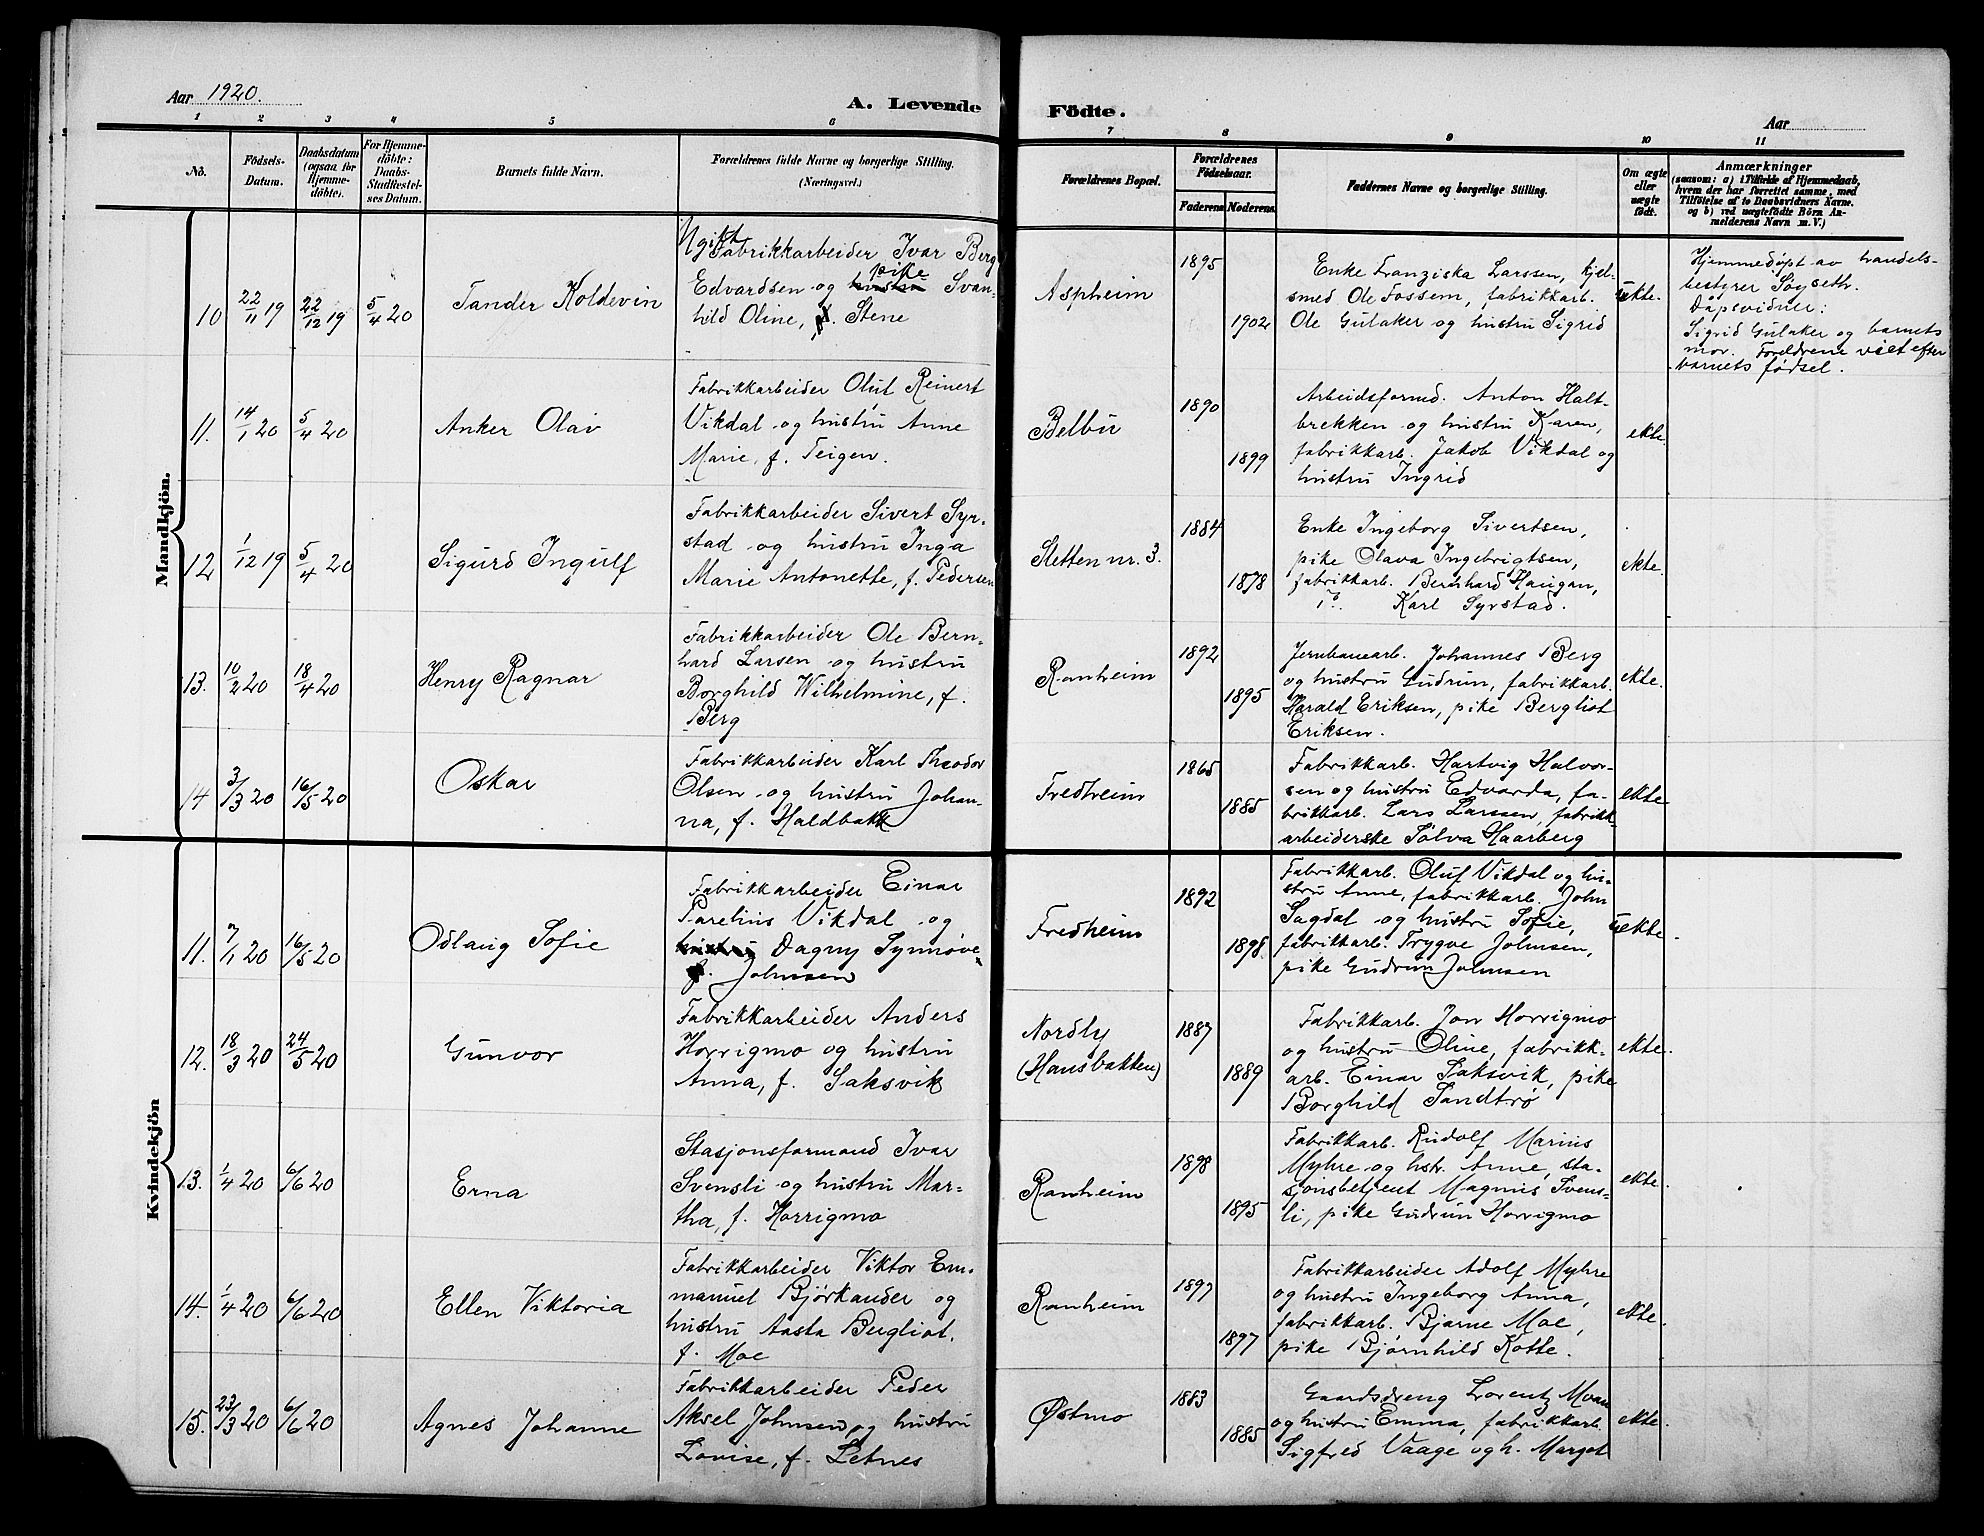 Aar 1920.
A. Levende
Födte.
Aar
1 2 3 4 5 6 7 8 9 10 11
No.
Födsels-
Datum.
Daabsdatum
(ogsaa for
Hjemme-
döbte).
For Hjemme-
döbte:
Daabs-
Stadfæstel-
ses Datum.
Barnets fulde Navn.
Forældrenes fulde Navne og borgerlige Stilling.
(Næringsvei.)
Forældrenes Bopæl.
Forældrenes
Födselsaar.
Faderens Moderens
Faddernes Navne og borgerlige Stilling.
Om ægte
eller
uægte
födt.
Anmærkninger
(saasom: a) i Tilfælde af Hjemmedaab,
hvem der har forrettet samme, med
Tilföielse af to Daabsvidners Navne.
og b) ved uægtefödte Börn An-
melderens Navn m. V.)
Mandkjön.
10 22/11 19 22/12 19 5/4 20 Tander Koldevin
Ugift
Fabrikkarbeider Ivar Berg
Edvardsen og hustru pike Svan-
hild Oline, f. Stene
Aspheim
1895
1902
Enke Franziska Larssen, kjel-
smed Ole Fossem, fabrikkarb.
Ole Gulaker og hustru Sigrid
uekte.
Hjemmedøpt av handels-
bestyrer Søyseth.
Dåpsvidner:
Sigrid Gulaker og barnets
mor. Foreldrene viet efter
barnets fødsel.
11. 14/1 20 5/4 20 Anker Olav
Fabrikkarbeider Oluf Reinert
Vikdal og hustru Anne
Marie, f. Teigen.
Belbu
1890
1899
Arbeidsformd. Anton Halt-
brekken og hustru Karen,
fabrikkarb. Jakob Vikdal og
hustru Ingrid
ekte.
12 1/12 19 5/4 20 Sigurd Ingulf
Fabrikkarbeider Sivert Syr-
stad og hustru Inga
Marie Antonette, f. Pedersen
Sletten nr. 3.
1884
1878
Enke Ingeborg Sivertsen,
pike Olava Ingebrigtsen,
fabrikkarb. Bernhard Haugan,
do. Karl Syrstad.
ekte.
13. 10/2 20 18/4 20 Henry Ragnar
Fabrikkarbeider Ole Bern-
hard Larsen og hustru
Borghild Wilhelmine, f.
Berg
Ranheim
1892
1895
Jernbanearb. Johannes Berg
og hustru Gudrun, fabrikkarb.
Harald Eriksen, pike Bergliot
Eriksen.
ekte.
14 3/3 20 16/5 20 Oskar
Fabrikkarbeider Karl Theodor
Olsen og hustru Johan-
na, f. Haldbakk
Fredheim
1865
1885
Fabrikkarb. Hartvig Halvor-
sen og hustru Edvarda, fa-
brikkarb. Lars Larssen, fabrikk-
arbeiderske Sølva Haarberg
ekte
Kvindekjön
11. 7/1 20 16/5 20 Odlaug Sofie
Fabrikkarbeider Einar
Parelius Vikdal og
hustru Dagny Synnøve
f. Johnsen
Fredheim
1892
1898.
Fabrikkarb. Oluf Vikdal og hu-
stru Anne, fabrikkarb. John
Sagdal og hustru Sofie,
fabrikkarb. Trygve Johnsen,
pike Gudrun Johnsen
uekte
12. 18/3 20 24/5 20 Gunvor
Fabrikkarbeider Anders
Horrigmo og hustru
Anna, f. Saksvik
Nordly
(Hansbakken)
1887
1889
Fabrikkarb. Jon Horrigmo
og hustru Oline, fabrikk-
arb. Einar Saksvik, pike
Borghild Sandtrø
ekte.
13. 1/4 20 6/6 20 Erna
Stasjonsformand Ivar
Svensli og hustru Mar-
tha, f. Horrigmo
Ranheim
1898
1895
Fabrikkarb. Rudolf Marius
Myhre og hstr. Anne, sta-
sjonsbetjent Magnus Svens-
li, pike Gudrun Horrigmo
ekte.
14. 1/4 20 6/6 20 Ellen Viktoria
Fabrikkarbeider Viktor Em-
manuel Bjørkander og
hustru Aasta Bergliot,
f. Moe
Ranheim
1897
1897
Fabrikkarbeider Adolf Myhre
og hustru Ingeborg Anna,
fabrikkarb. Bjarne Moe,
pike Bjørnhild Kotte.
ekte.
15. 23/3 20 6/6 20 Agnes Johanne
Fabrikkarbeider Peder
Aksel Johnsen, og hustru
Lovise, f. Letnes
Østmo
1883
1885
Gaardsdreng Lorentz Moan
og hustru Emma, fabrikkarb.
Sigfred Vaage og h. Margot
ekte.